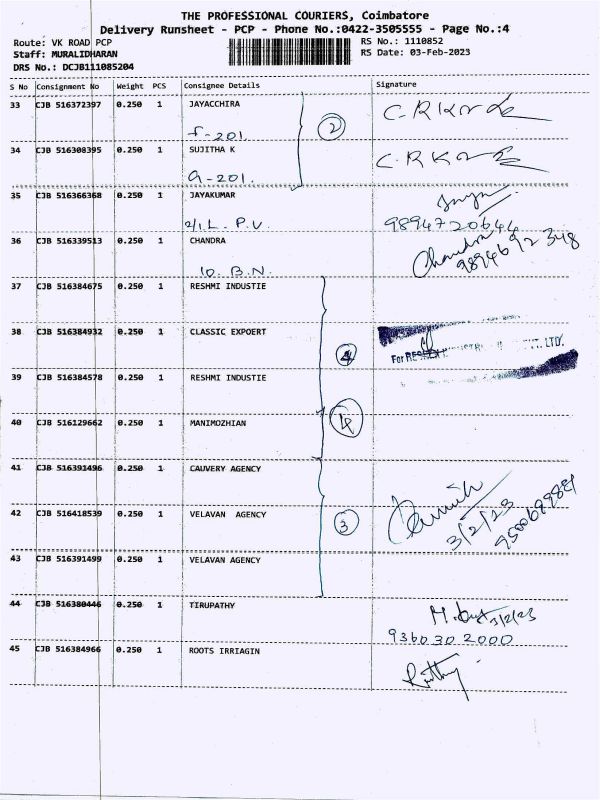 THE PROFESSIONAL COURIERS, Coimbatore
Delivery Runsheet - PCP - Phone No.:0422-3505555 - Page No.:4
Route: VK ROAD PCP RS No.: 1110852
Staff: MURALIDHARAN RS Date: 03-Feb-2023
DRS No.: DCJB111085204
S No Consignment No Weight PCS Consignee Details Signature
33 CJB 516372397 0.250 1 JAYACCHIRA
f-201. 2
34 CJB 516308395 0.250 1 SUJITHA K
G-201.
35 CJB 516366368 0.250 1 JAYAKUMAR
2/1.L. P.V. 9894720644
36 CJB 516339513 0.250 1 CHANDRA Chandra
10. B.N. 98946 92 348
37 CJB 516384675 0.250 1 RESHMI INDUSTIE
38 CJB 516384932 0.250 1 CLASSIC EXPOERT
4 For PVT. LTD.
39 CJB 516384578 0.250 1 RESHMI INDUSTIE
40 CJB 516129662 0.250 1 MANIMOZHIAN
41 CJB 516391496 0.250 1 CAUVERY AGENCY
42 CJB 516418539 0.250 1 VELAVAN AGENCY
3 3/2/23
43 CJB 516391499 0.250 1 VELAVAN AGENCY
44 CJB 516380446 0.250 1 TIRUPATHY 3/2/23
9360302000
45 CJB 516384966 0.250 1 ROOTS IRRIAGIN